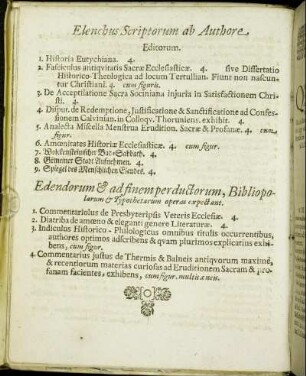 Elenchus Scriptorum ab Authore
Editorum.
1. Historia Eutychiana. 4.
2. Fasciculus antiqvitatis Sacræ Ecclesiasticæ. 4. sive Dissertatio
Historico-Theologica ad locum Tertullian. Fiunt non nascun-
tur Christiani. 4. cum figuris.
3. De Acceptilatione Sacra Sociniana injuria in Satisfactionem Chri-
sti. 4.
4. Disput. de Redemptione, Justificatione & Sanctificatione ad Confes-
sionem Calvinian. in Colloqv. Thoruniens. exhibit. 4.
5. Analecta Miscella Menstrua Erudition. Sacræ & Profanæ. 4. cum
figur.
6. Amœnitates Historiæ Ecclesiasticæ. 4. cum figur.
7. Bad-Sabbath. 4.
8. Stadt Aufnehmen. 4.
9. Spiegel des Menschlichen 4.
Edendorum & ad finem perductorum, Bibliopo-
larum & Typothetarum operas expectant.
1. Commentariolus de Presbyteriplis Veteris Ecclesiæ. 4.
2. Diatriba de amœno & eleganti genere Literaturæ. 4.
3. Indiculus Historico-Philologicus omnibus titulis occurrentibus,
authores optimos adscribens & qvam plurimos explicatius exhi-
bens, cum figur.
4. Commentarius justus de Thermis & Balneis antiqvorum maximè,
& recentiorum materias curiosas ad Eruditionem Sacram & pro-
fanam facientes, exhibens, cum figur. multis æneis.